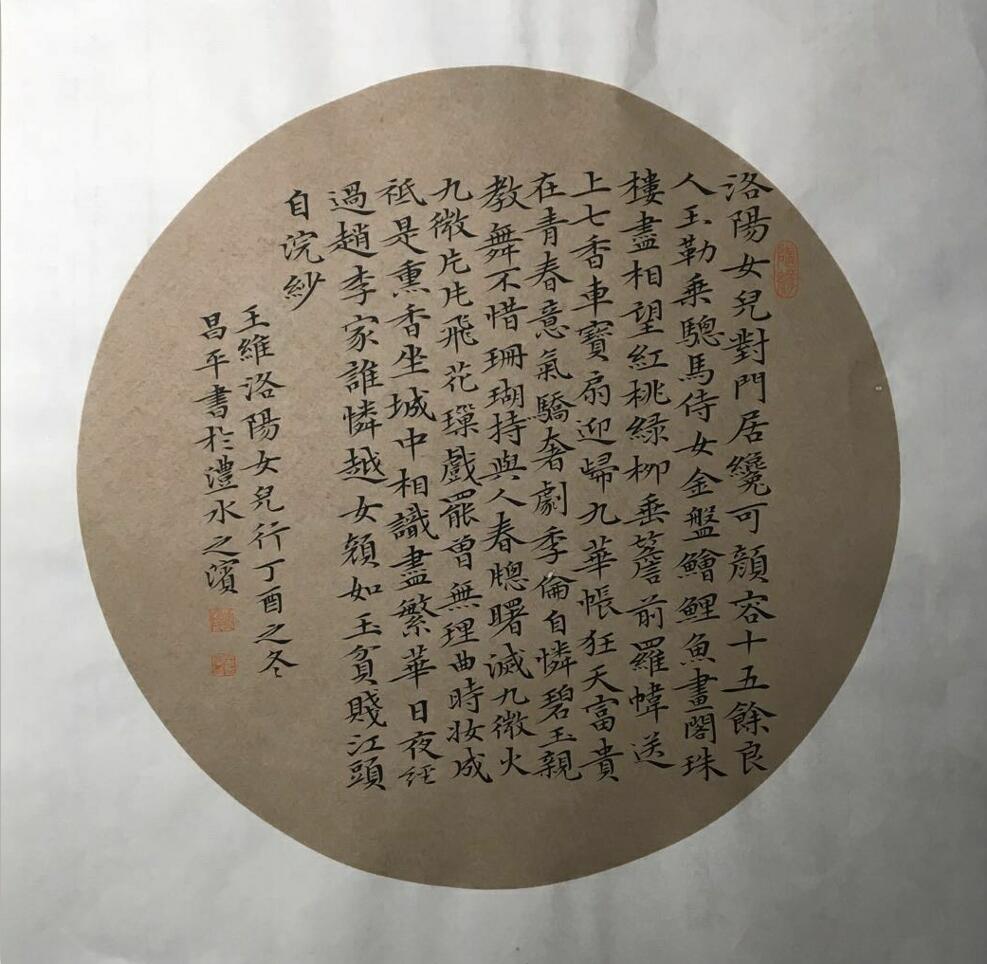 洛陽女兒對門居纔可顏容十五餘良
人玉勒乘驄馬侍女金盤鱠鯉魚畫閣珠
樓盡相望紅桃綠柳垂簷前羅幃送
上七香車寶扇迎歸九華帳狂夫富貴
在青春意氣驕奢劇季倫自憐碧玉親
教舞不惜珊瑚持與人春牕曙滅九微火
九微片片飛花璅戲罷曾無理曲時妝成
祗是熏香坐城中相識盡繁華日夜經
過趙李家誰憐越女顏如玉貧賤江頭
自浣紗
王維洛陽女兒行丁酉之冬
昌平書於澧水之濱